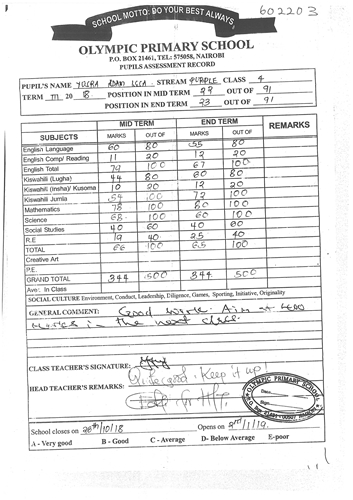 602203
SCHOOL MOTTO: DO YOUR BEST ALWAYS
OLYMPIC PRIMARY SCHOOL
P.O. BOX 21461, TEL: 575058, NAIROBI
PUPILS ASSESSMENT RECORD
PUPIL'S NAME YUSRA ADAN ISSA STREAM PURPLE CLASS 4
TERM III 20 18 POSITION IN MID TERM 29 OUT OF 91
POSITION IN END TERM 23 OUT OF 91
MID TERM END TERM REMARKS
SUBJECTS MARKS OUT OF MARKS OUT OF
English Language 60 80 55 80
English Comp/ Reading 11 20 12 20
English Total 79 100 67 100
Kiswahili (Lugha) 44 80 60 80
Kiswahili (Insha)/ Kusoma 10 20 12 20
Kiswahili Jumla 54 100 72 100
Mathematics 78 100 80 100
Science 68 100 60 100
Social Studies 40 60 40 60
R.E 19 40 25 40
TOTAL 66 100 65 100
Creative Art
P.E.
GRAND TOTAL 344 500 344 500
Aver. In Class
SOCIAL CULTURE Environment, Conduct, Leadership, Diligence, Games, Sporting, Initiative, Originality
GENERAL COMMENT: Good work. Aim at
marks in the next class.
CLASS TEACHER'S SIGNATURE:
HEAD TEACHER'S REMARKS: Quite good. Keep it up
OLYMPIC PRIMARY SCHOOL
School closes on 26th/10/18 Opens on 2nd/1/19
A - Very good B - Good C - Average D- Below Average E-poor